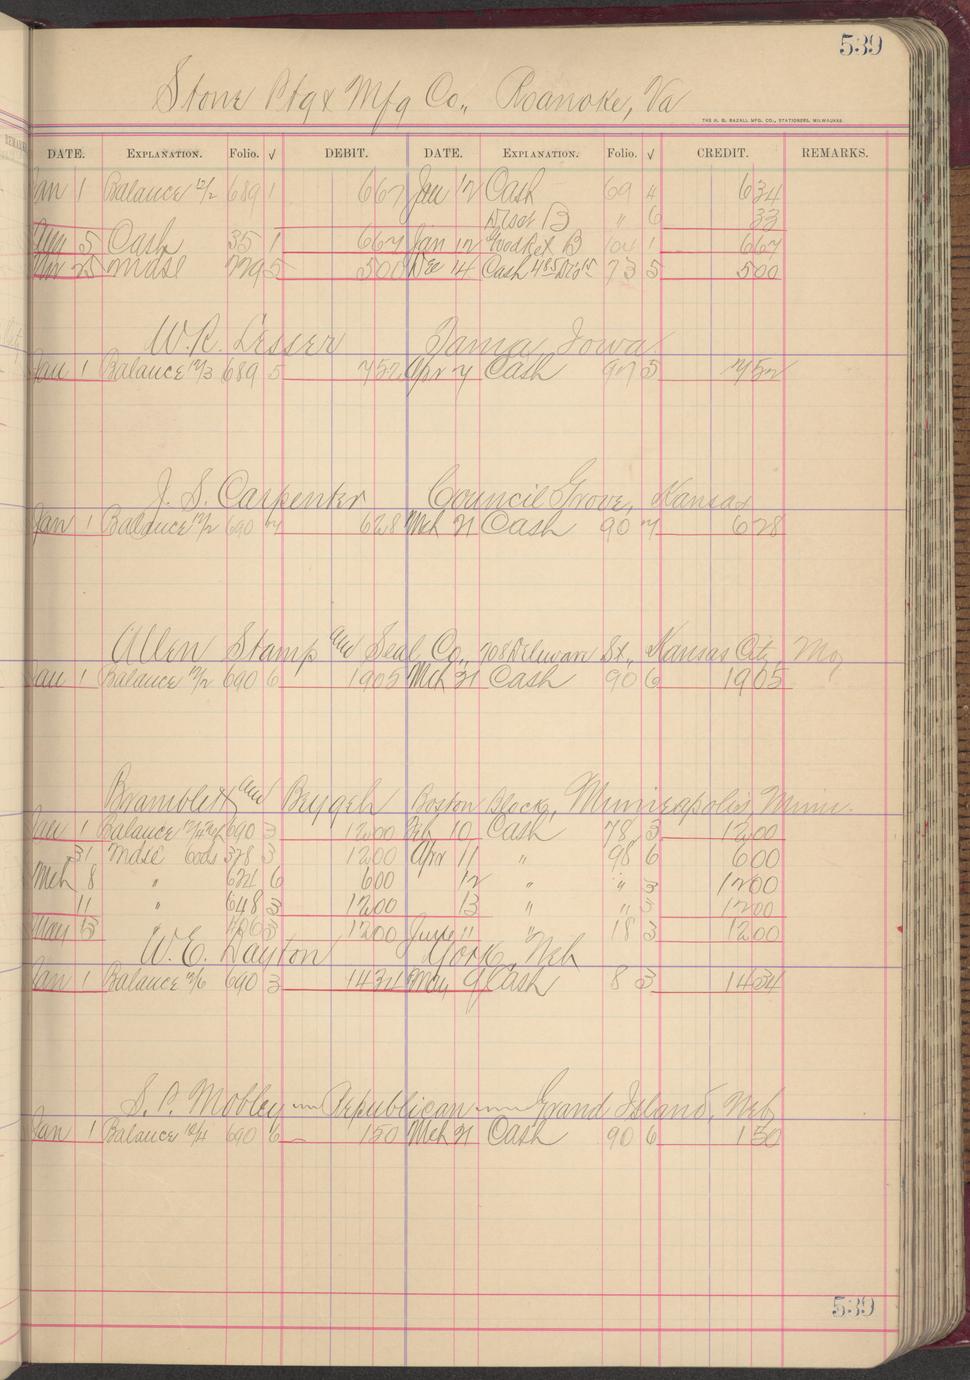 539
Stone Ptg & Mfg Co., Roanoke, Va
THE H. G. RAZALL MFG. CO., STATIONERS, MILWAUKEE.
DATE. EXPLANATION. Folio. √ DEBIT. DATE. EXPLANATION. Folio. √ CREDIT. REMARKS.
Jan 1 Balance 12/2 689 1 667 Jan 12 Cash 69 4 634
Disct B " 6 33
5 Cash 35 1 667 Jan 12 B 104 1 667
25 Mdse 779 5 500 Dec 14 Cash 73 5 500
W. R. Lesser Tama, Iowa
Jan 1 Balance 12/3 689 5 752 Apr 7 Cash 97 5 752
J. S. Carpenter Council Grove, Kansas
Jan 1 Balance 12/2 690 7 628 Mch 21 Cash 90 7 628
Allen Stamp and Seal Co., 708 Delaware St., Kansas City, Mo,
Jan 1 Balance 12/2 690 6 1905 Mch 21 Cash 90 6 1905
Bramblett and Beygeh Boston Block, Minneapolis, Minn.
Jan 1 Balance 690 3 1200 Feb 10 Cash 78 3 1200
31 Mdse 378 3 1200 Apr 11 " 98 6 600
Mch 8 " 624 6 600 12 " " 3 1200
11 " 648 3 1200 13 " " 3 1200
May 13 3 1200 June " " 18 3 1200
W. E. Dayton York, Neb
Jan 1 Balance 12/6 690 3 1434 May 9 Cash 8 3 1434
S. P. Mobley — Republican — Grand Island, Neb,
Jan 1 Balance 12/4 690 6 150 Mch 21 Cash 90 6 150
539